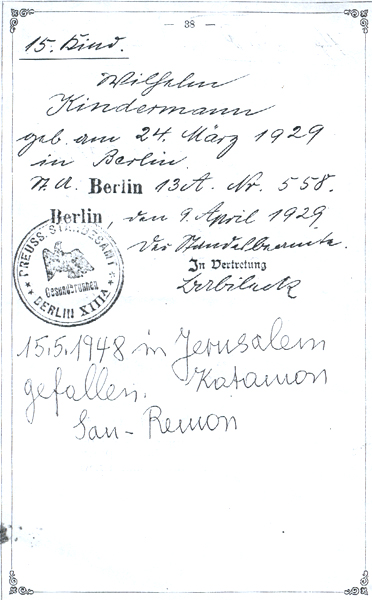 — 38 —
15. Kind.
Wilhelm
Kindermann
geb. am 24. März 1929
in Berlin.
St. A. Berlin 13A. Nr. 558.
Berlin, den 9. April 1929.
Der Standesbeamte.
In Vertretung
PREUSS. STANDESAMT
Gesundbrunnen
BERLIN XIIIA
15.5.1948 in Jerusalem
gefallen. Katamon
San-Remon